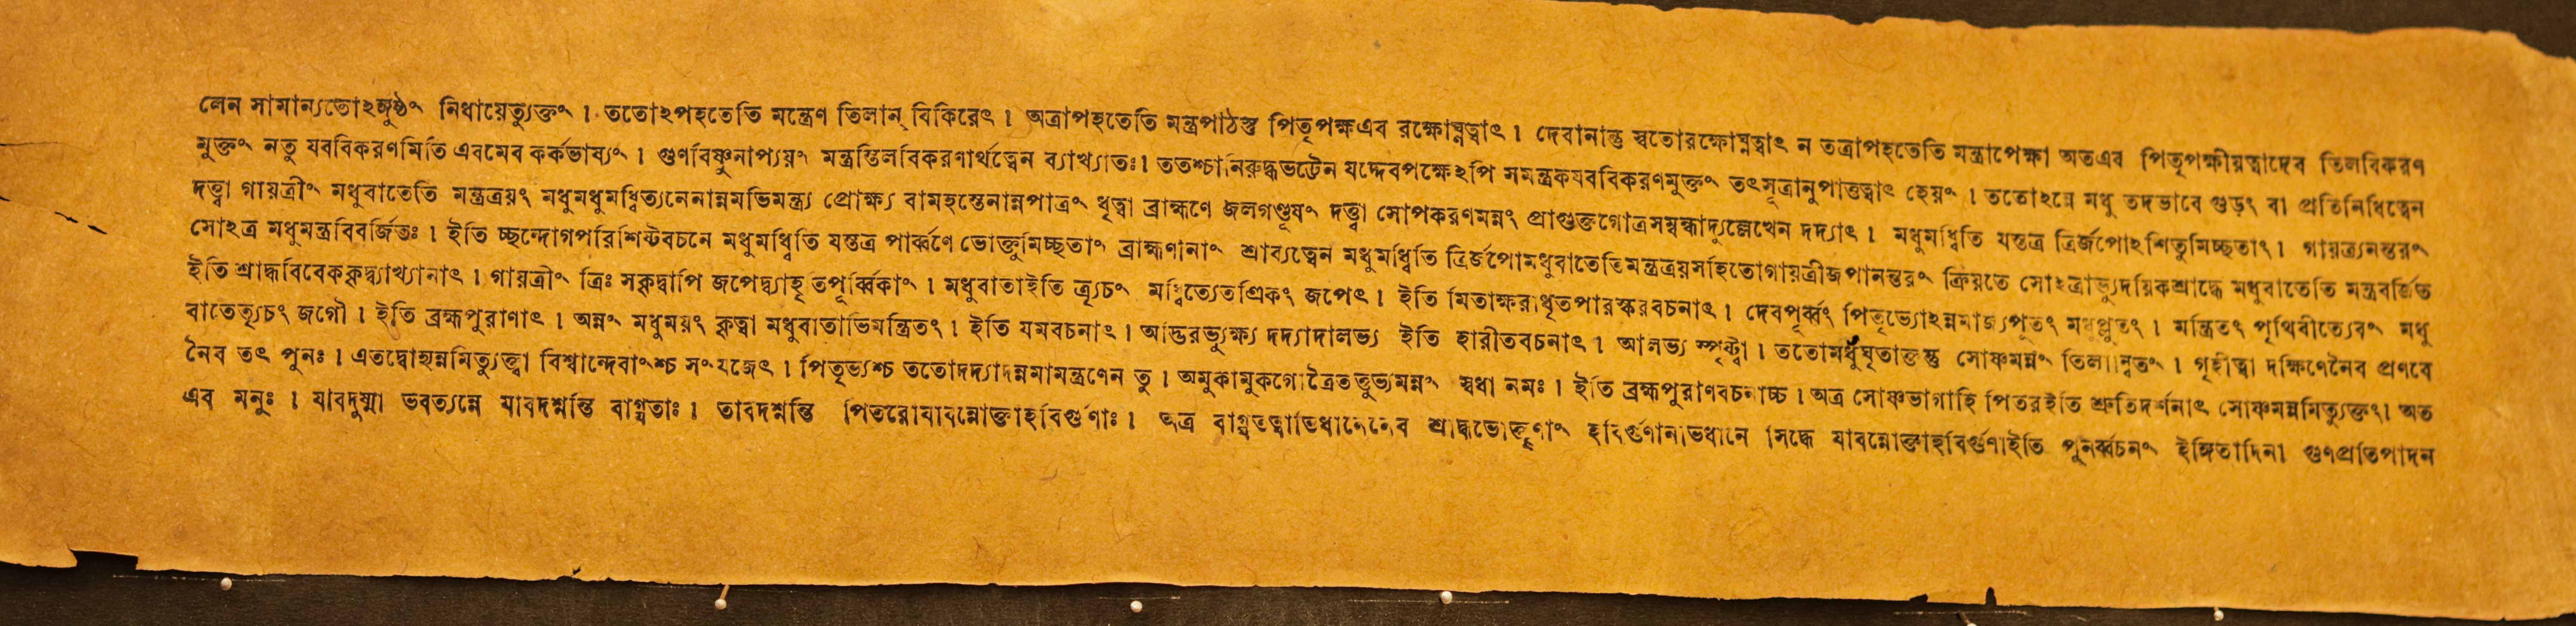 লেন সামান্যতোঽঙ্গুষ্ঠং নিধায়েত্যুক্তং । ততোঽপহতেতি মন্ত্রেণ তিলান্ বিকিরেৎ । অত্রাপহতেতি মন্ত্রপাঠস্তু পিতৃপক্ষএব রক্ষোঘ্নত্বাৎ । দেবানান্তু স্বতোরক্ষোঘ্নত্বাৎ ন তত্রাপহতেতি মন্ত্রাপেক্ষা অতএব পিতৃপক্ষীয়ত্বাদেব তিলবিকরণ
মুক্তং নতু যববিকরণমিতি এবমেব কর্কভাষ্যং । গুণবিষ্ণুনাপ্যয়ং মন্ত্রস্তিলবিকরণার্থত্বেন ব্যাখ্যাতঃ। ততশ্চানিরুদ্ধভট্টেন যদ্দেবপক্ষেঽপি সমন্ত্রকযববিকরণমুক্তং তৎসূত্রানুপাত্তত্বাৎ হেয়ং । ততোঽন্নে মধু তদভাবে গুড়ং বা প্রতিনিধিত্বেন
দত্ত্বা গায়ত্রীং মধুবাতেতি মন্ত্রত্রয়ং মধুমধুমধ্বিত্যনেনান্নমভিমন্ত্র্য প্রোক্ষ্য বামহস্তেনান্নপাত্রং ধৃত্বা ব্রাহ্মণে জলগণ্ডূষং দত্ত্বা সোপকরণমন্নং প্রাগুক্তগোত্রসম্বন্ধাদ্যুল্লেখেন দদ্যাৎ । মধুমধ্বিতি যস্তত্র ত্রির্জপোঽশিতুমিচ্ছতাং । গায়ত্র্যনন্তরং
সোঽত্র মধুমন্ত্রবিবর্জিতঃ । ইতি চ্ছন্দোগপরিশিষ্টবচনে মধুমধ্বিতি যস্তত্র পার্ব্বণে ভোক্তুমিচ্ছতাং ব্রাহ্মণানাং শ্রাব্যত্বেন মধুমধ্বিতি ত্রির্জপোমধুবাতেতিমন্ত্রত্রয়সহিতোগায়ত্রীজপানন্তরং ক্রিয়তে সোঽত্রাভ্যুদয়িকশ্রাদ্ধে মধুবাতেতি মন্ত্রবর্জিত
ইতি শ্রাদ্ধবিবেককৃদ্ব্যাখ্যানাৎ । গায়ত্রীং ত্রিঃ সকৃদ্বাপি জপেদ্ব্যাহৃতিপূর্ব্বিকাং । মধুবাতাইতি ত্র্যৃচং মধ্বিত্যেতত্রিকং জপেৎ । ইতি মিতাক্ষরাধৃতপারস্করবচনাৎ । দেবপূর্ব্বং পিতৃভ্যোঽন্নমাজ্যপূতং মধুপ্লুতং । মন্ত্রিতং পৃথিবীত্যেবং মধু
বাতেত্যৃচং জগৌ । ইতি ব্রহ্মপুরাণাৎ । অন্নং মধুময়ং কৃত্বা মধুবাতাভিমন্ত্রিতং । ইতি যমবচনাৎ । অদ্ভিরভ্যুক্ষ্য দদ্যাদালভ্য ইতি হারীতবচনাৎ । আলভ্য স্পৃষ্ট্বা । ততোমধুঘৃতাক্তন্তু সোষ্ণমন্নং তিলান্বিতং । গৃহীত্বা দক্ষিণেনৈব প্রণবে
নৈব তৎ পুনঃ । এতদ্বোহ্যন্নমিত্যুক্ত্বা বিশ্বান্দেবাংশ্চ সংযজেৎ । পিতৃভ্যশ্চ ততোদদ্যাদন্নমামন্ত্রণেন তু । অমুকামুকগোত্রৈতত্তুভ্যমন্নং স্বধা নমঃ । ইতি ব্রহ্মপুরাণবচনাচ্চ । অত্র সোষ্ণভাগাহি পিতরইতি শ্রুতিদর্শনাৎ সোষ্ণমন্নমিত্যুক্তং। অত
এব মনুঃ । যাবদুষ্মা ভবত্যন্নে যাবদশ্নন্তি বাগ্যতাঃ । তাবদশ্নন্তি পিতরোযাবন্নোক্তাহবির্গুণাঃ । অত্র বাগ্যতত্বাভিধানেনৈব শ্রাদ্ধভোক্তৃণাং হবির্গুণানভিধানে সিদ্ধে যাবন্নোক্তাহবির্গুণাইতি পুনর্ব্বচনং ইঙ্গিতাদিনা গুণপ্রতিপাদন